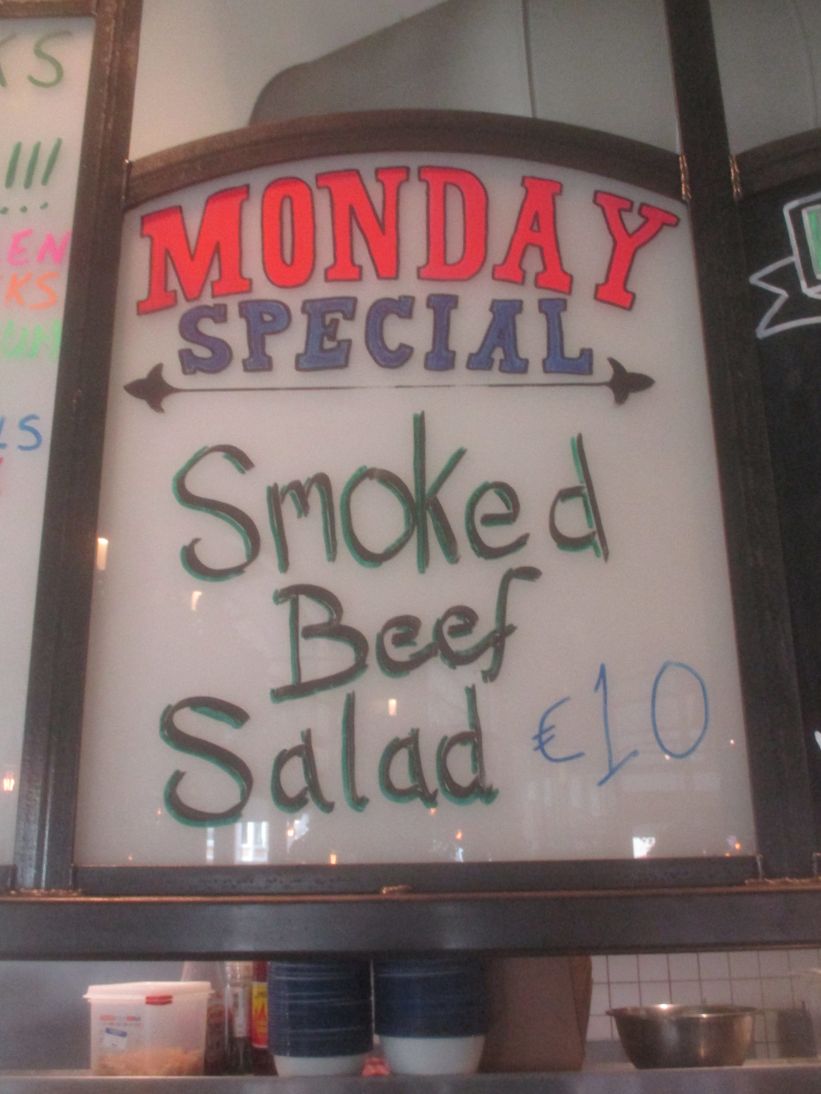 KS
!!!
MONDAY
SPECIAL
Smoked
Beef
Salad €10